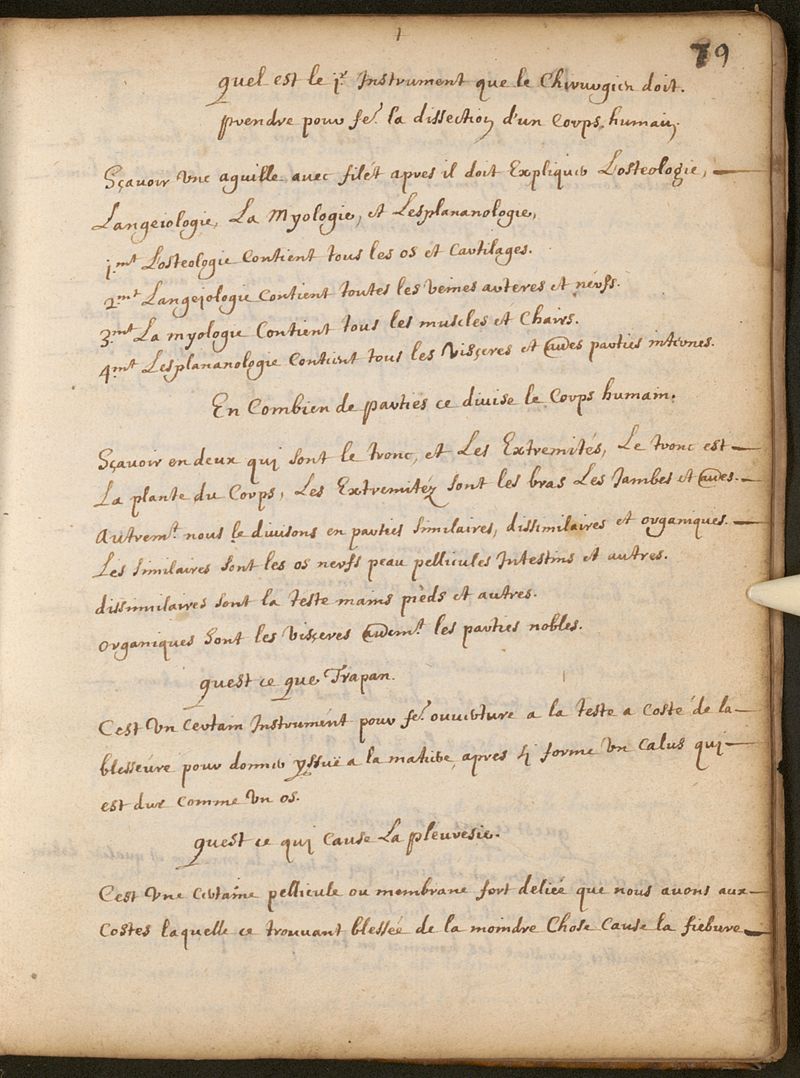 79
quel est le jr. Instrument que le Chirurgien doit.
prendre pour fe.r la dissection d'un Corps, humain.
Sçavoir Une aguille avec filét apres il doit Expliquer Losteologie,
Langeiologie, La Myologie, et Lesplananologie,
1.mt Losteologie Contient tous les os et Cartilages.
2.mt Langejologie Contient toutes les veines arteres et nérfs.
3.mt La myologie Contient tous les muscles et Chairs.
4.mt Lesplananologie Contient tous les Visçeres et parties internes.
En Combien de parties ce divise le Corps humain.
Sçavoir en deux qui sont le tronc, et Les Extremités, Le tronc est
La plante du Corps, Les Extremitéz sont les bras Les Jambes et
Autrem.t nous le divisons en parties similaires, dissimilaires et organiques.
Les similaires sont les os nerfs peau pellicules Intestins et autres.
dissimilaires sont la teste mains pièds et autres.
organiques sont les Visçeres les parties nobles.
quest ce que Trapan.
C'est Un Certain Instrumént pour fe.r ouverture a la teste a Costé de la
blesseure pour donner yssuë a la matiere, apres il forme Un Calus qui
est dur Comme Un os.
quest ce qui Cause La pleuresie.
C'est Une Certaine pellicule ou membrane fort deliée que nous avons aux
Costes laquelle ce trouvant blessée de la moindre Chose Cause la fiebure